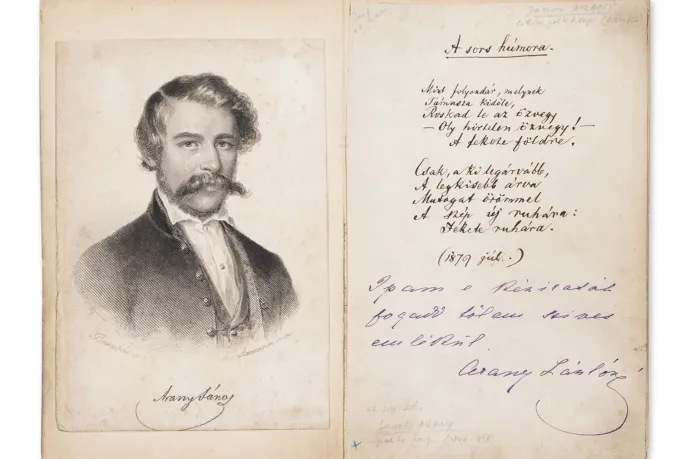 Arany János
A sors húmora.
Mint folyondár, melynek
Támasza kidőle,
Roskad le az özvegy
— Oly hirtelen özvegy! —
A fekete földre.
Csak, a ki legárvább,
A legkisebb árva
Mutogat örömmel
A szép új ruhára:
Fekete ruhára.
(1879 júl.)
Ipam e kéziratát
fogadd tőlem szives
emlékül.
Arany Lászlóné